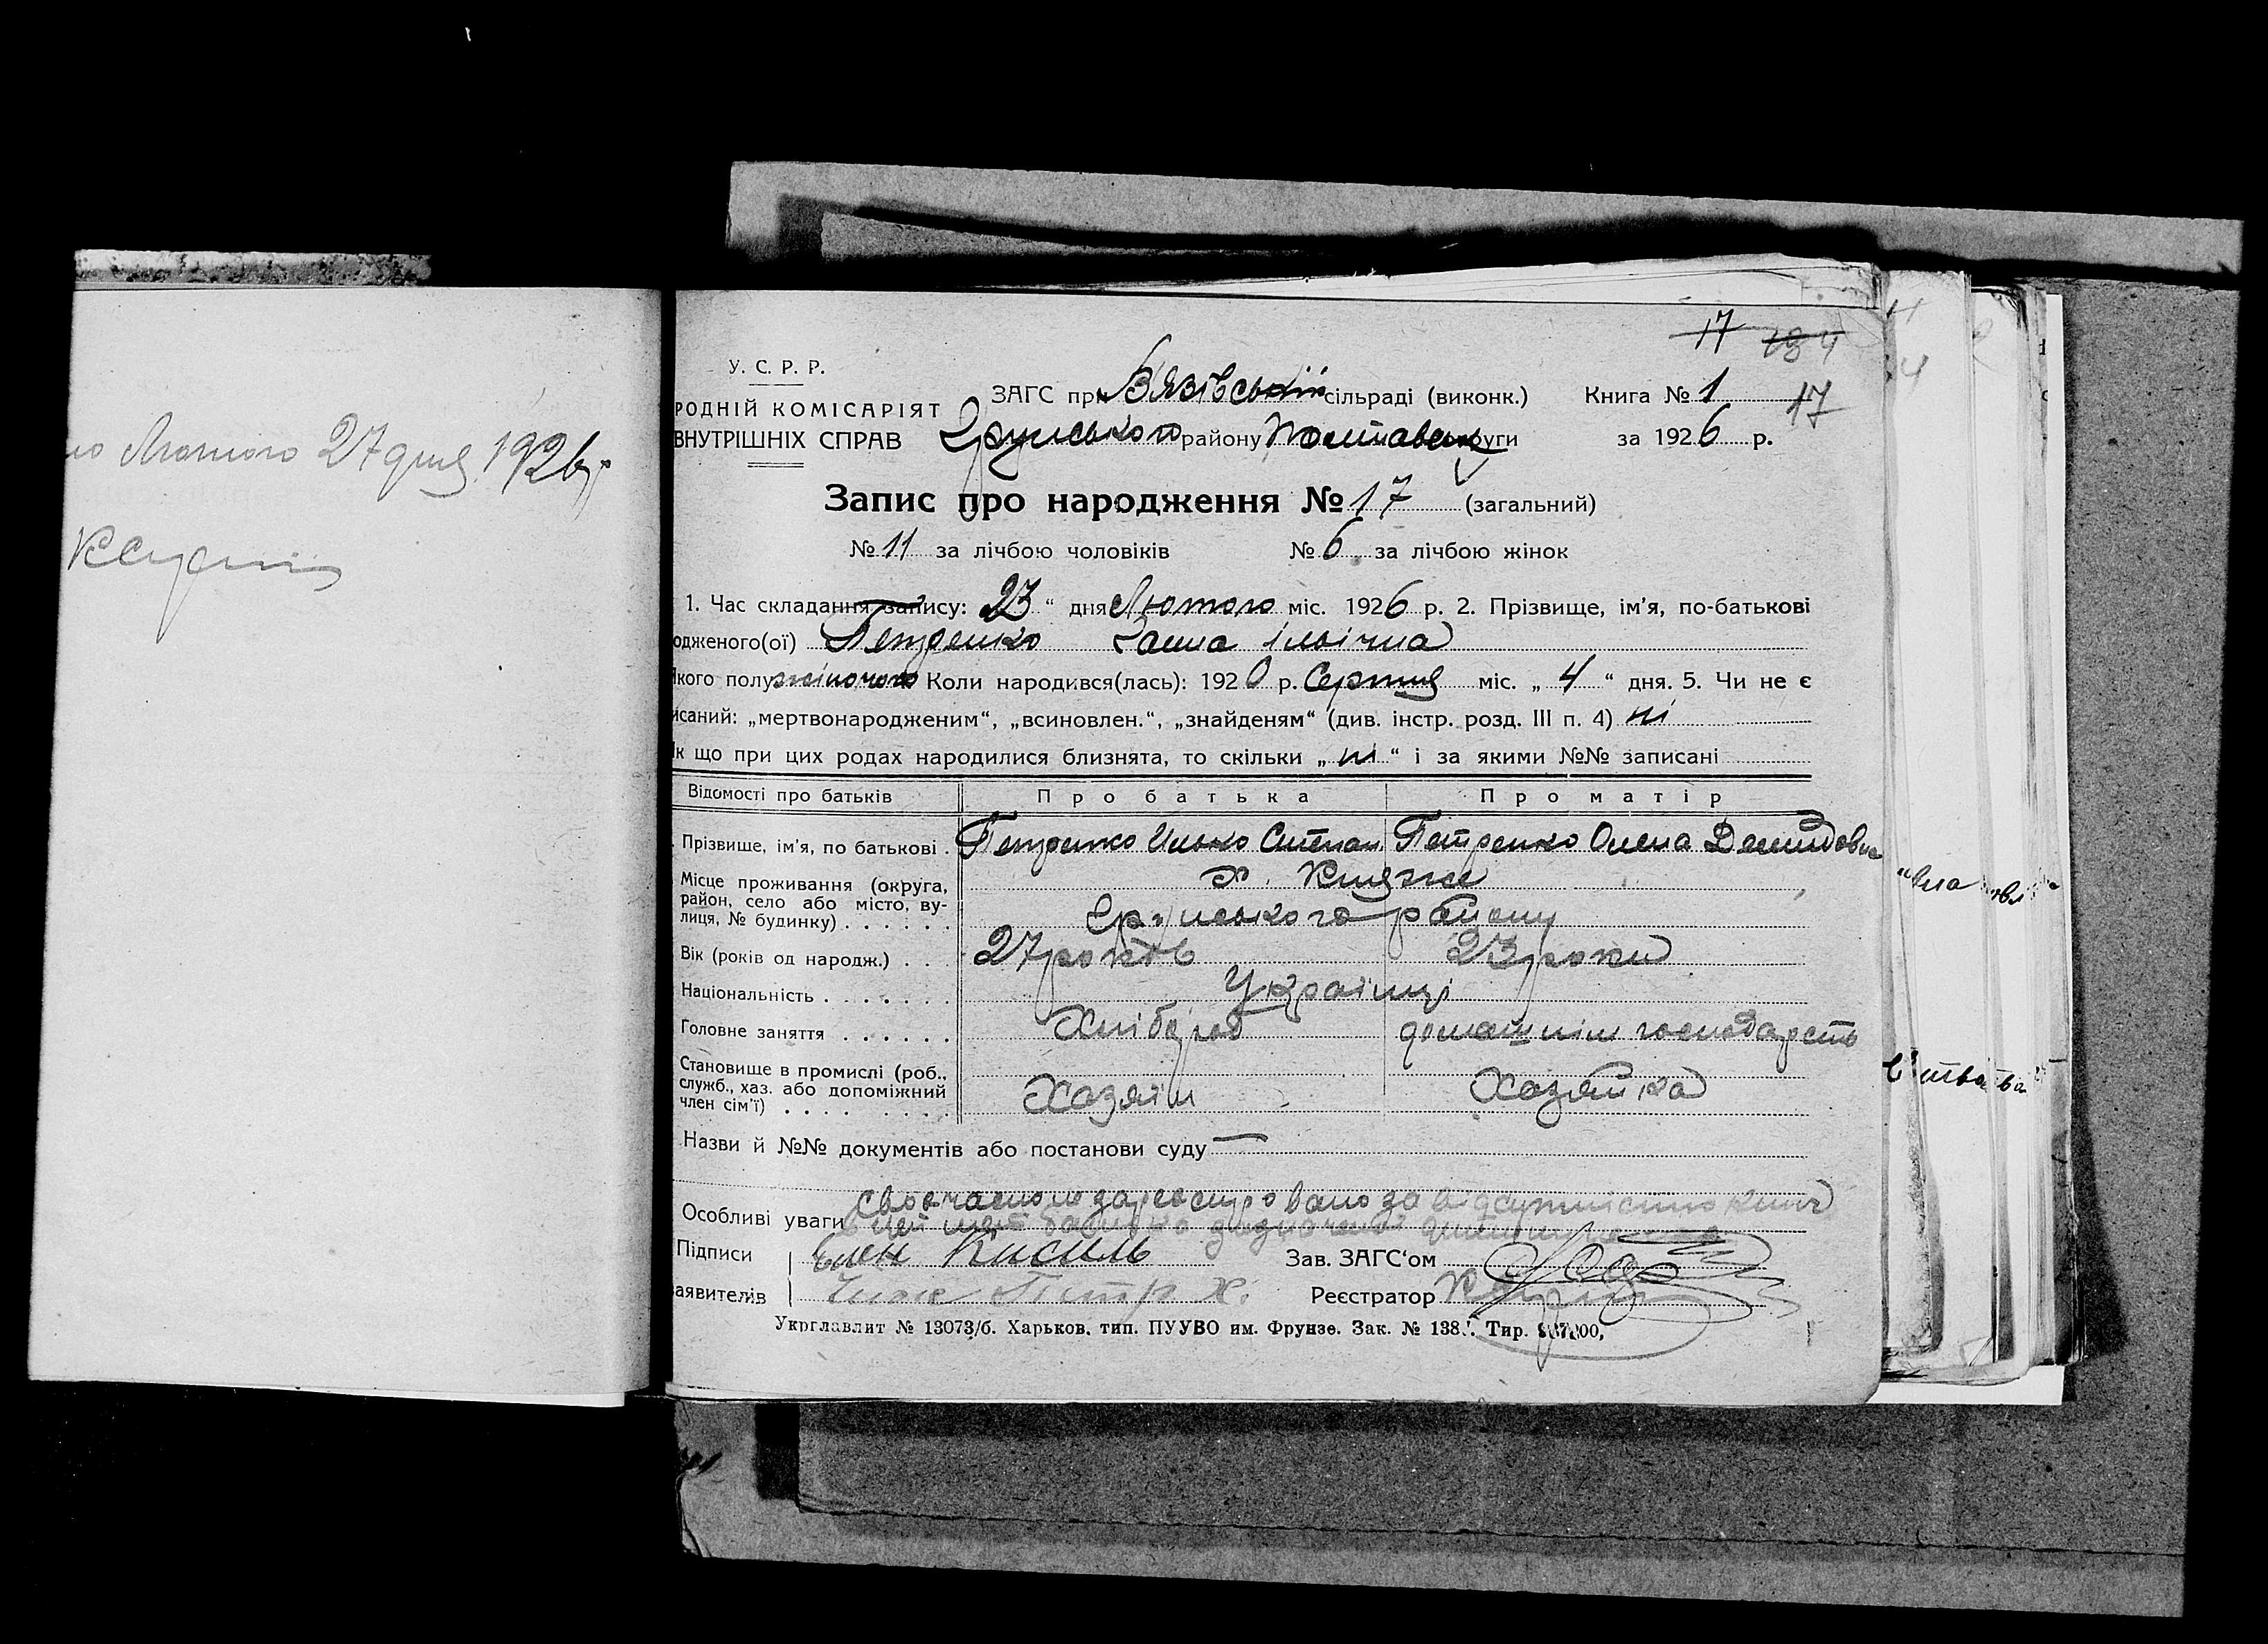 Лютого 27 дня 1926 р
17 134
У. С. Р. Р.
РОДНІЙ КОМІСАРІЯТ
ВНУТРІШНІХ СПРАВ
ЗАГС при В'язівській сільраді (виконк.) Книга № 1 17
Грунського району Полтавськ руги за 1926 р.
Запис про народження № 17 (загальний)
№ 11 за лічбою чоловіків № 6 за лічбою жінок
1. Час складання запису: 23 “ дня Лютого міс. 1926 р. 2. Прізвище, ім’я, по-батькові
одженого(ої) Петренко Ганна Ільїчна
якого полу жіночого Коли народився(лась): 1920 р. Серпня міс. „ 4 “ дня. 5. Чи не є
исаний: „мертвонародженим“, „всиновлен.“, „знайденям“ (див. інстр. розд. III п. 4) ні
як що при цих родах народилися близнята, то скільки „ ні “ і за якими №№ записані
Відомості про батьків Про батька Про матір
Прізвище, ім’я, по батькові . Петренко Илько Степан Петренко Олена Демидовна
Місце проживання (округа, район, село або місто, вулиця, № будинку) . . . . . . х. Княже
Грунського району
Вік (років од народж.) . . . 27 років 23 роки
Національність . . . . . . . Українці
Головне заняття . . . . . . Хлібороб домашнім господарсть
Становище в промислі (роб., служб., хаз. або допоміжний член сім’ї) . . . . . . . . . Хазяїн Хазяйка
Назви й №№ документів або постанови суду —
Особливі уваги своєчасно не зареєстровано за відсутністю книг
в цей
Підписи Член Кисиль Зав. ЗАГС‘ом
аявителів Реєстратор
Укрглавлит № 13073/б. Харьков. тип. ПУУВО им. Фрунзе. Зак. № 138 Тир.